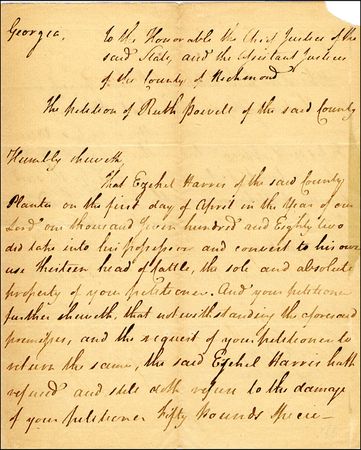 Georgia. To the Honorable the Chief Justice of the
said State, and the Assistant Justices
of the County of Richmond
The petition of Ruth Powell of the said County
Humbly sheweth,
That Ezekel Harris of the said County
Planter on the first day of April in the Year of our
Lord one thousand seven hundred and Eighty two
did take into his possession and convert to his own
use thirteen head of Cattle, the sole and absolute
property of your petitioner. And your petitioner
further sheweth, that notwithstanding the aforesaid
premises, and the request of your petitioner to
return the same, the said Ezekel Harris hath
refused and still doth refuse to the damage
of your petitioner Fifty Pounds Specie—